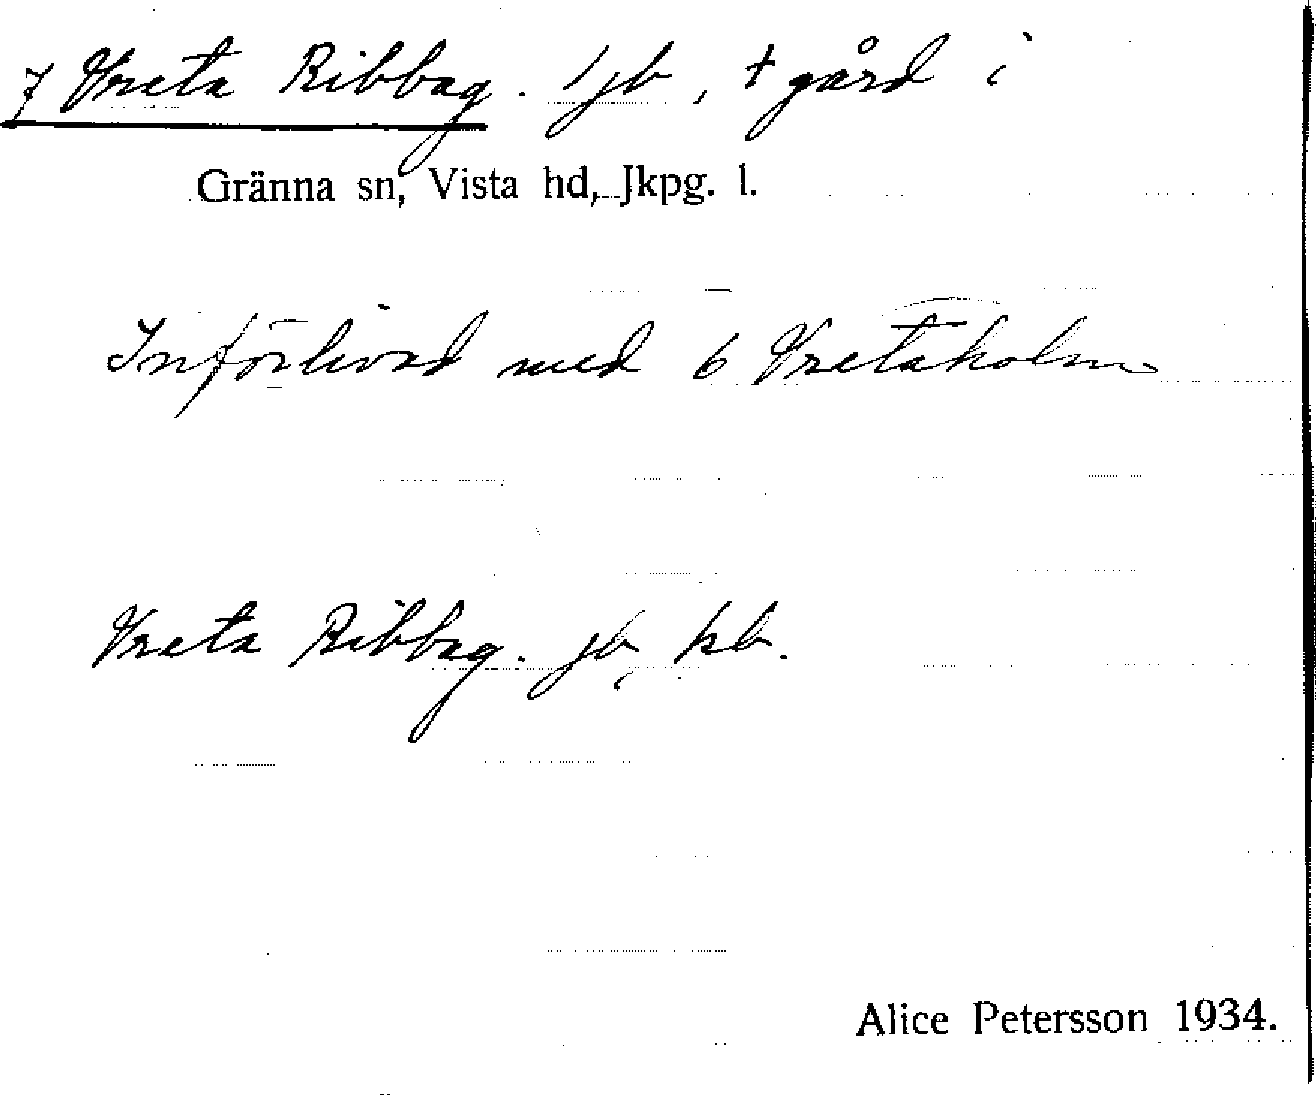 7 Vreta Ribbag. 1 jb, + gård i
Gränna sn, Vista hd, Jkpg. l.
Införlivad med 6 Vretaholm
Vreta Ribbag. jb, kb.
Alice Petersson 1934.